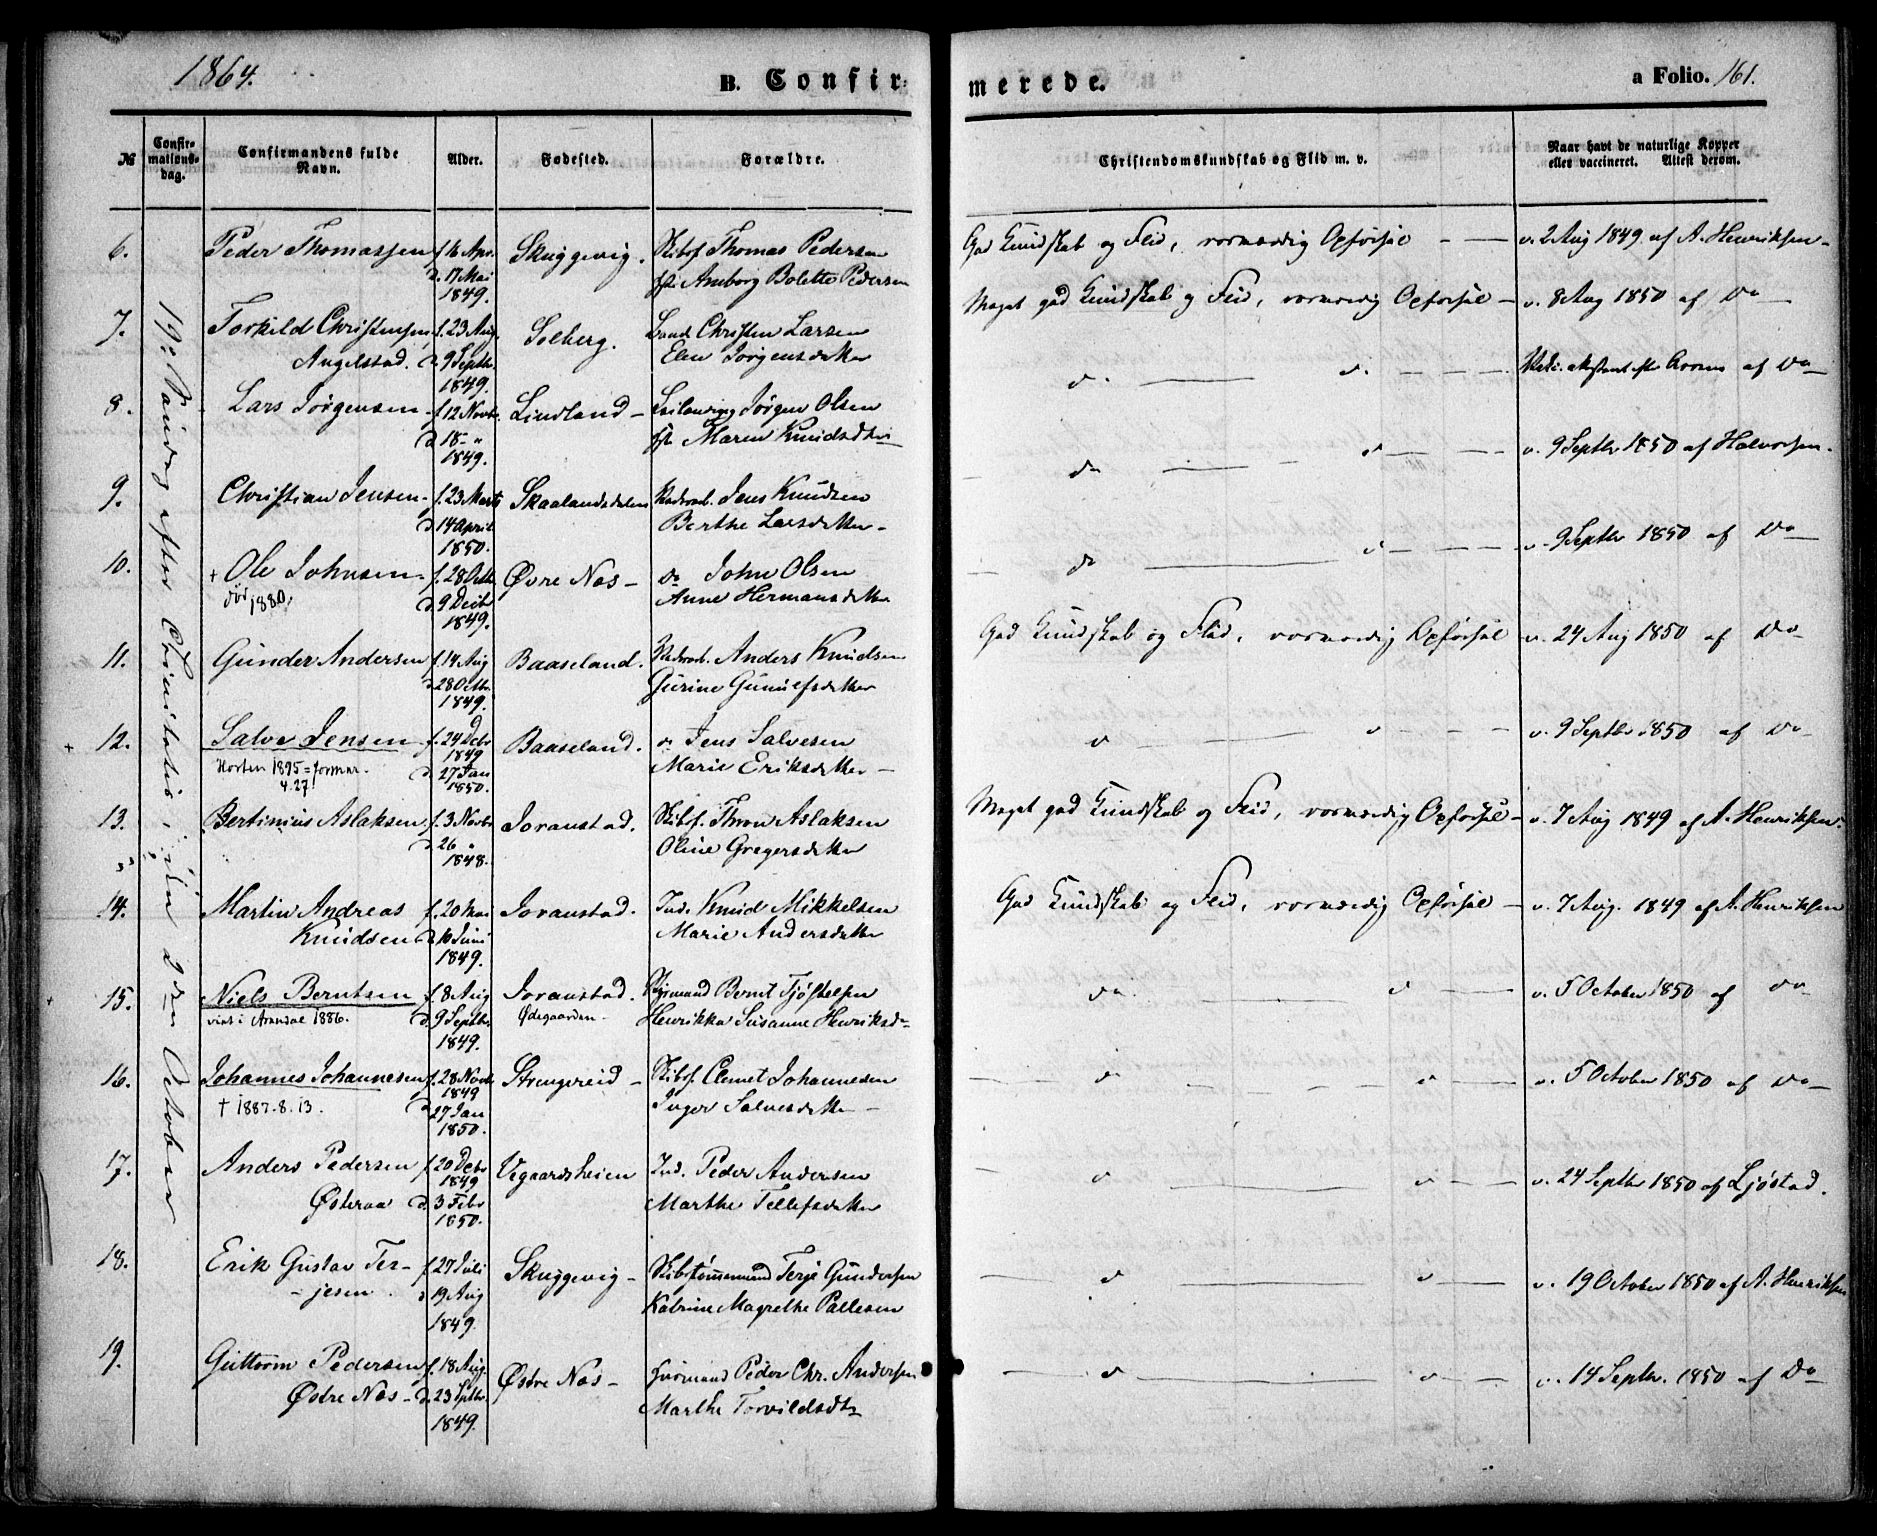 1864.
B. Confir-
merede.
a Folio. 161.
№
Confirmations-dag.
Confirmandens fulde Navn.
Alder.
Fødested.
Forældre.
Christendomskundskab og Flid m. v.
Naar havt de naturlige Kopper eller vaccineret. Attest derom.
19de Søndag efter Trinitatis, den 2den October
6. Peder Thomassen f. 16 Apr. Skuggevig. Skibsf. Thomas Pedersen God Kundskab og Flid, vornærdig Opførsel - — v. 2 Aug 1849 af A. Henriksen -
d. 17 Mai
1849. Amborg Bolette Pedersen
7. Torkild Christensen f. 23 Aug. Solberg. Christen Larsen Meget god Kundskab og Flid, vornærdig Opførsel - v. 8 Aug 1850 af Do
Angelstad. d. 9 Septbr. Elen Jørgensdatter
1849.
8. Lars Jørgensen - f. 12 Novbr. Lindland - Jørgen Olsen do — d. — af Do
d 18 - "
1849. Maren Knudsdtr
9. Christian Jensen - f. 23 Marts Skaalandsdalen Jens Knudsen do — d — v. 9 Septbr 1850 af Halvorsen.
d 14 April Berthe Larsdatter -
1850.
10. + Ole Johnsen - f. 28 Octb. Øvre Næs - do John Olsen do — d — v. 9 Septbr 1850 af Do
dør 1880. d. 9 Decbr Anne Hermansdatter
1849.
11. Gunder Andersen f. 14 Aug Baaseland. Anders Knudsen God Kundskab og Flid, vornærdig Opførsel v. 24 Aug 1850 af Do
d 28 Octbr. Gurine Gunulfsdatter
1849.
+ 12. Salve Jensen f. 24 Decbr Baaseland. do Jens Salvesen d — d — v. 9 Septbr 1850 af Do
1849
Horten 1895 = formur. d. 27 Jan Marie Eriksdatter -
4.27! 1850.
13. Bertinius Aslaksen f. 3 Novbr Joranstad. Skibsf. Thron Aslaksen Meget god Kundskab og Flid, vornærdig Opførsel - v. 7 Aug 1849 af A. Henriksen.
d. 26 " Oline Gregersdatter
1848.
14. Martin Andreas f. 20 Mai Joranstad. Ind. Knud Mikkelsen God Kundskab og Flid, vornærdig Opførsel - v. 7 Aug. 1849 af A. Henriksen
Knudsen - d. 10 Juni Marie Andersdatter
1849.
15. Niels Berntsen f. 8 Aug Joranstad. Styrmand Bernt Tjøstelsen do — d — v. 5 October 1850 af Do
vint i Arendal 1886. d. 9 Septbr. Ødegaarden - Henrikka Susanne Henriksd-
1849.
16. Johannes Johannesen f. 28 Novbr. Strengereid - Skibsf. Clemet Johannesen d — d — v. 5 October 1850 af Do
1849
+ 1887.8.13. d 27 Jan Inger Salvesdatter -
1850.
17. Anders Pedersen f. 20 Decbr Vegaardsheien Ind. Peder Andersen d — d — v. 24 Septbr 1850 af Ljøstad.
1849
Østeraa d. 3 Febr Marthe Tellefsdatter
1850.
18. Erik Gustav Ter- f. 27 Juli Skuggevig - Skibstømmermand Terje Gundersen d — d — v. 19 October 1850 af A. Henriksen
- jesen d 19 Aug Katrine Magrethe Pallesen
1849.
19. Guttorm Pedersen f. 18 Aug. Østre Næs - Peder Chr. Andersen d — d — v. 14 Septbr. 1850 af Do
Østre Næs - d. 23 Septbr. Marthe Torvildsdtr
1849.